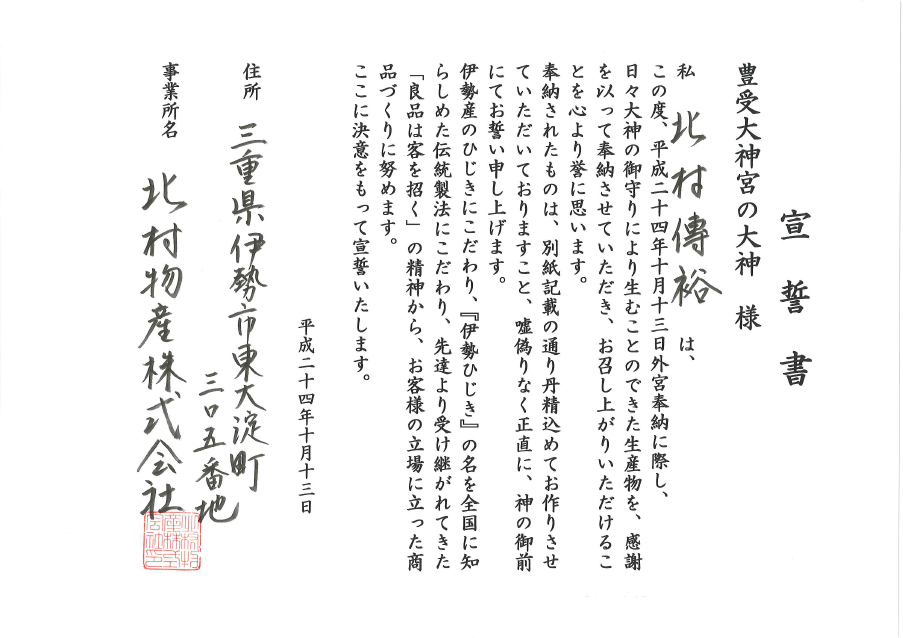 宣誓書
豊受大神宮の大神 様
私 北村傳裕 は、
この度、平成二十四年十月十三日外宮奉納に際し、
日々大神の御守りにより生むことのできた生産物を、感謝
を以って奉納させていただき、お召し上がりいただけるこ
とを心より誉に思います。
奉納されたものは、別紙記載の通り丹精込めてお作りさせ
ていただいておりますこと、嘘偽りなく正直に、神の御前
にてお誓い申し上げます。
伊勢産のひじきにこだわり、『伊勢ひじき』の名を全国に知
らしめた伝統製法にこだわり、先達より受け継がれてきた
「良品は客を招く」の精神から、お客様の立場に立った商
品づくりに努めます。
ここに決意をもって宣誓いたします。
平成二十四年十月十三日
住所 三重県伊勢市東大淀町
三口五番地
事業所名 北村物産株式会社